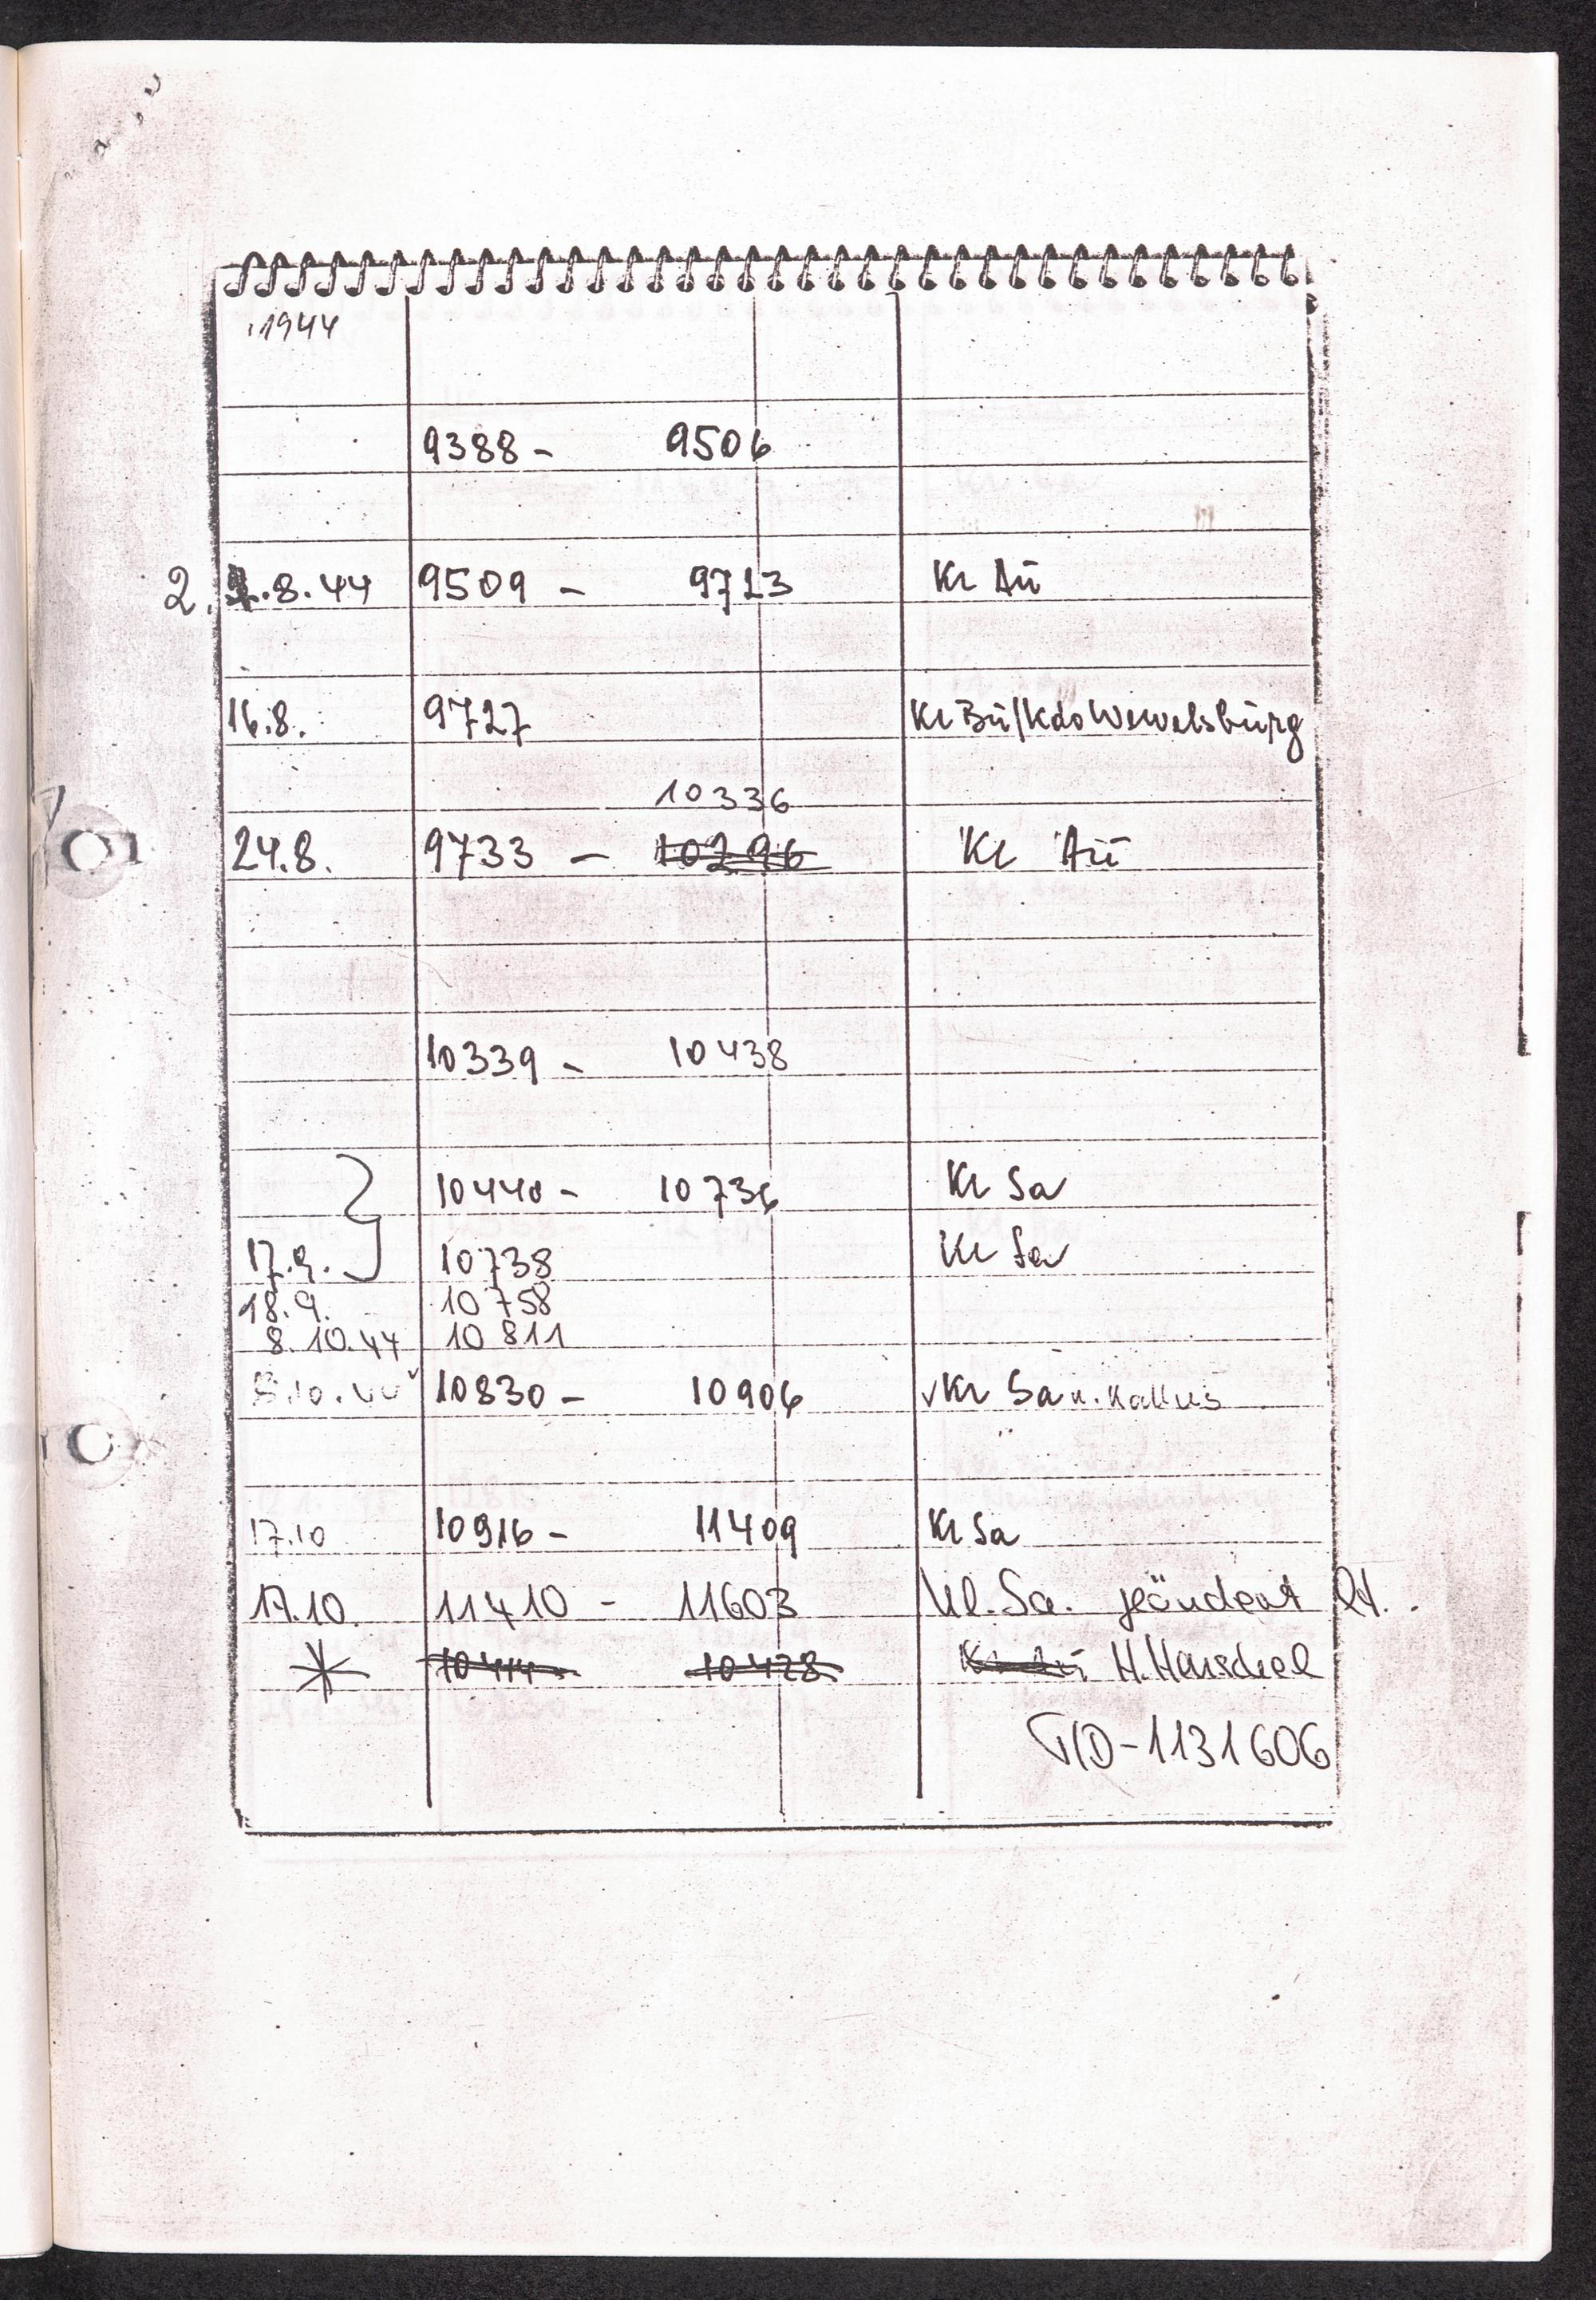 1944
9388 - 9506
2. 8.44 9509 - 9713 Kl Aū
16.8. 9727 Kl Bū/Kdo Wewelsbūrg
10336
24.8. 9733 - 10296 Kl Aū
10339 - 10438
10440 - 10736 Kl Sa
17.9. 10738 Kl Sa
18.9. 10758
8.10.44 10811
10.44 10830 - 10906 Kl Sa
17.10 10916 - 11409 Kl Sa
17.10. 11410 - 11603 Kl. Sa. geändert lt.
* H. Henschel
T/D-1131606